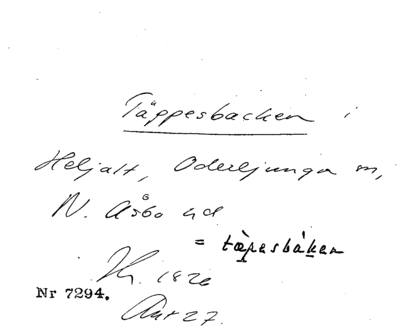 Täppesbacken i
Heljalt, Oderljunga sn,
N. Åsbo hd
= tæpesbaken
1926
Nr 7294.
27.